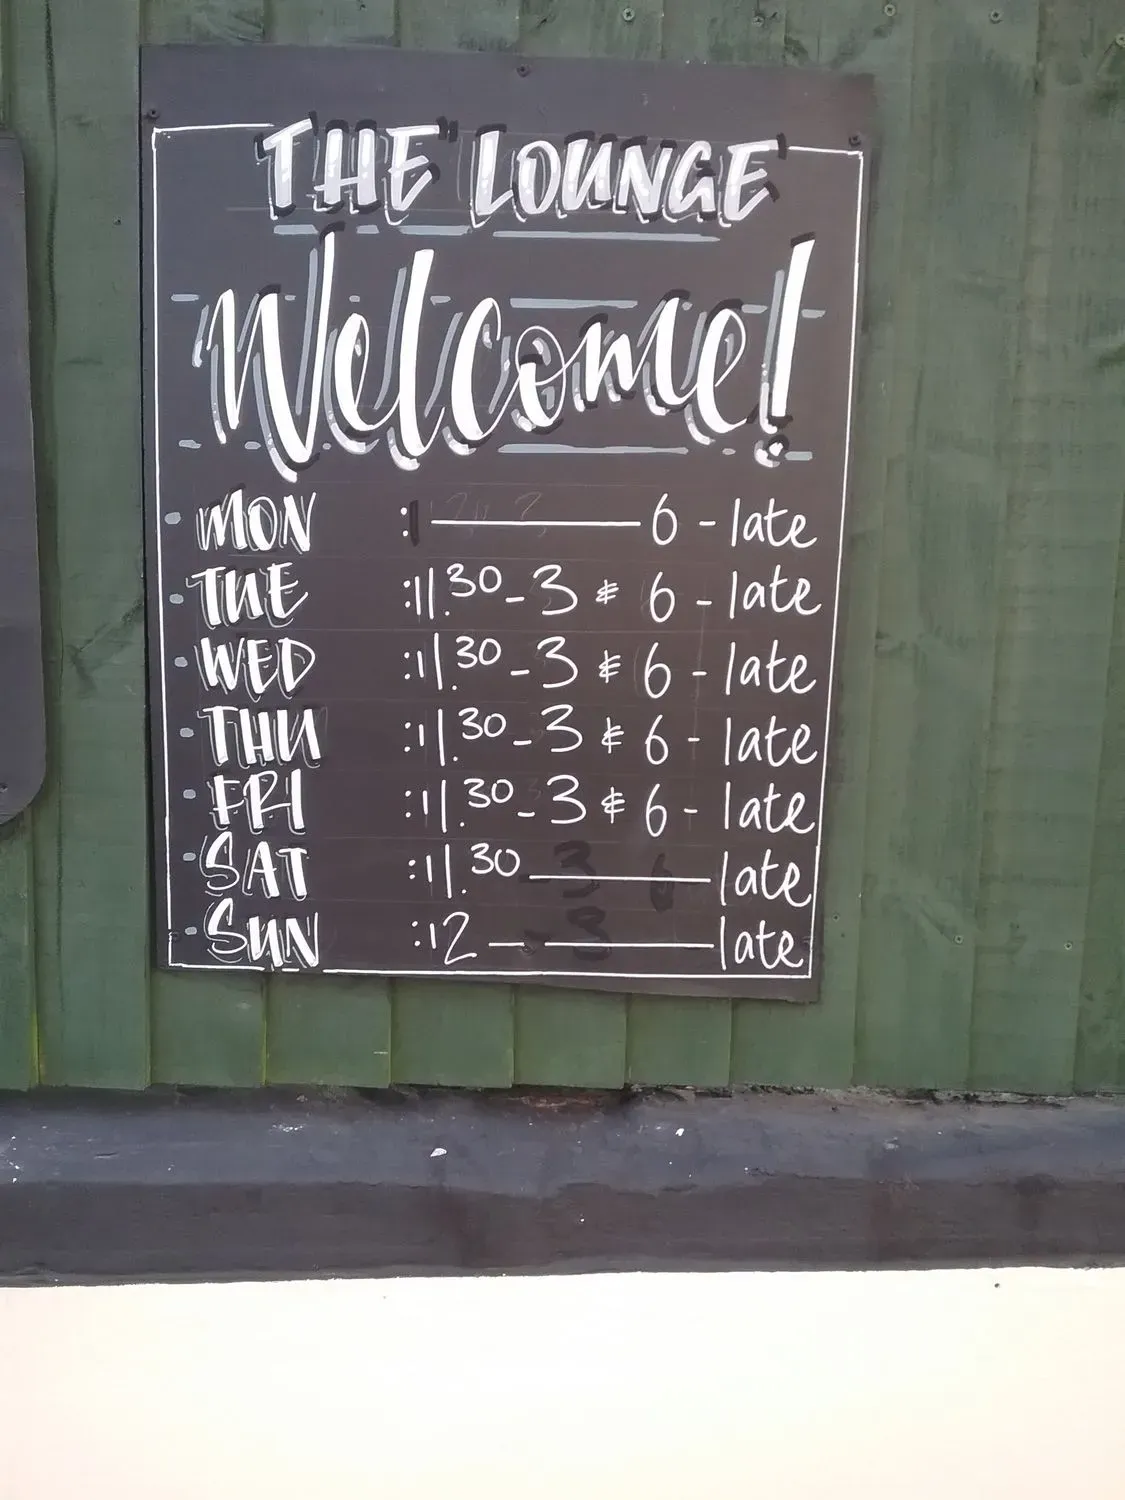 THE LOUNGE
Welcome!
MON : 6 - late
TUE : 11.30 - 3 & 6 - late
WED : 11.30 - 3 & 6 - late
THU : 11.30 - 3 & 6 - late
FRI : 11.30 - 3 & 6 - late
SAT : 11.30 — late
SUN : 12 — late